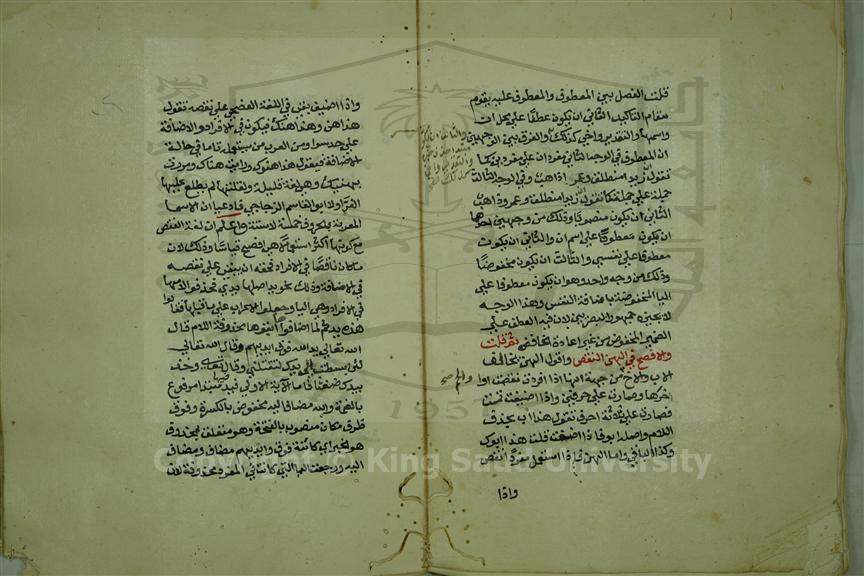 قلت الفصل بين المعطوف والمعطوف عليه يقوم
مقام التاكيد الثاني ان يكون عطفا على محل ان
واسمها والتقدير واخي كذلك والفرق بين الوجهين
ان المعطوف في الوجه الثاني مفرد ان على مفردين كما
تقول ان زيد منطلق وعمر اذاهب وفي الوجه الثالث
جملة على جملة كما تقول ان زيدا منطلق وعمرو ذاهب
الثاني ان يكون منصوبا وذلك من وجهين احدهما
ان يكون معطوفا على اسم ان والثاني ان يكون
معطوفا على نفسي والثالث ان يكون مخفوضا
وذلك من وجه واحد وهو ان يكون معطوفا على
اليا المخفوضة باضافة النفس وهذا الوجه
لا يجيزه جمهور البصريين لان فيه العطف على
الضمير المخفوض من غير اعادة الخافض ثم قلت
والافصح في الهن النقص واقول الهن يخالف
الاب والاخ من جهة انها اذا افردت نقصت اوا
خرها وصارت على حرفين واذا اضيفت تمت
فصارت على ثلاثة احرف تقول هذا اب بحذف
اللام واصله ابو فاذا اضفته قلت هذا ابوك
وكذا الباقي واما الهن فاذا استعمل مفردا نقص
واذا
والحم صح
واذا اضيف بقي في اللغة الفصحى على نقصه تقول
هذا هن وهذا هنك فيكون في الافراد والاضافة
على حد سوا ومن العرب من يستعمله تاما في حالة
الاضافة فيقول هذا هنوك ورايت هناك ومررت
بهنيك وهي لغة قليلة ولقلتها لم يطلع عليها
الفرا ولا ابو القاسم الزجاجي فادعيا ان الاسما
المعربة بالحروف خمسة لا ستة واعلم ان لغة النقص
مع كونها اكثر استعمالا هي افصح قياسا وذلك لان
ما كان ناقصا في الافراد فحقه ان يبقى على نقصه
في الاضافة وذلك نحو يد اصلها يدي فحذفوا لامها
في الافراد وهي اليا وجعلوا الاعراب على ما قبلها فقالوا
هذه يد ثم لما اضافوها ابقوها محذوفة اللام قال
الله تعالى يد الله فوق ايديهم وقال الله تعالى
لئن بسطت الي يدك لتقتلني وقال تعالى وخذ
بيدك ضغثا فاما الاية الاولى فيد فيها مبتدا مرفوع
بالضمة والله مضاف اليه مخفوض بالكسرة وفوق
ظرف مكان منصوب بالفتحة وهو متعلق بمحذوف
هو الخبر اي كائنة فوق وايديهم مضاف ومضاف
اليه ورجعت اليا التي كانت في المفرد محذوفة لان
Copyright © King Saud University
1957